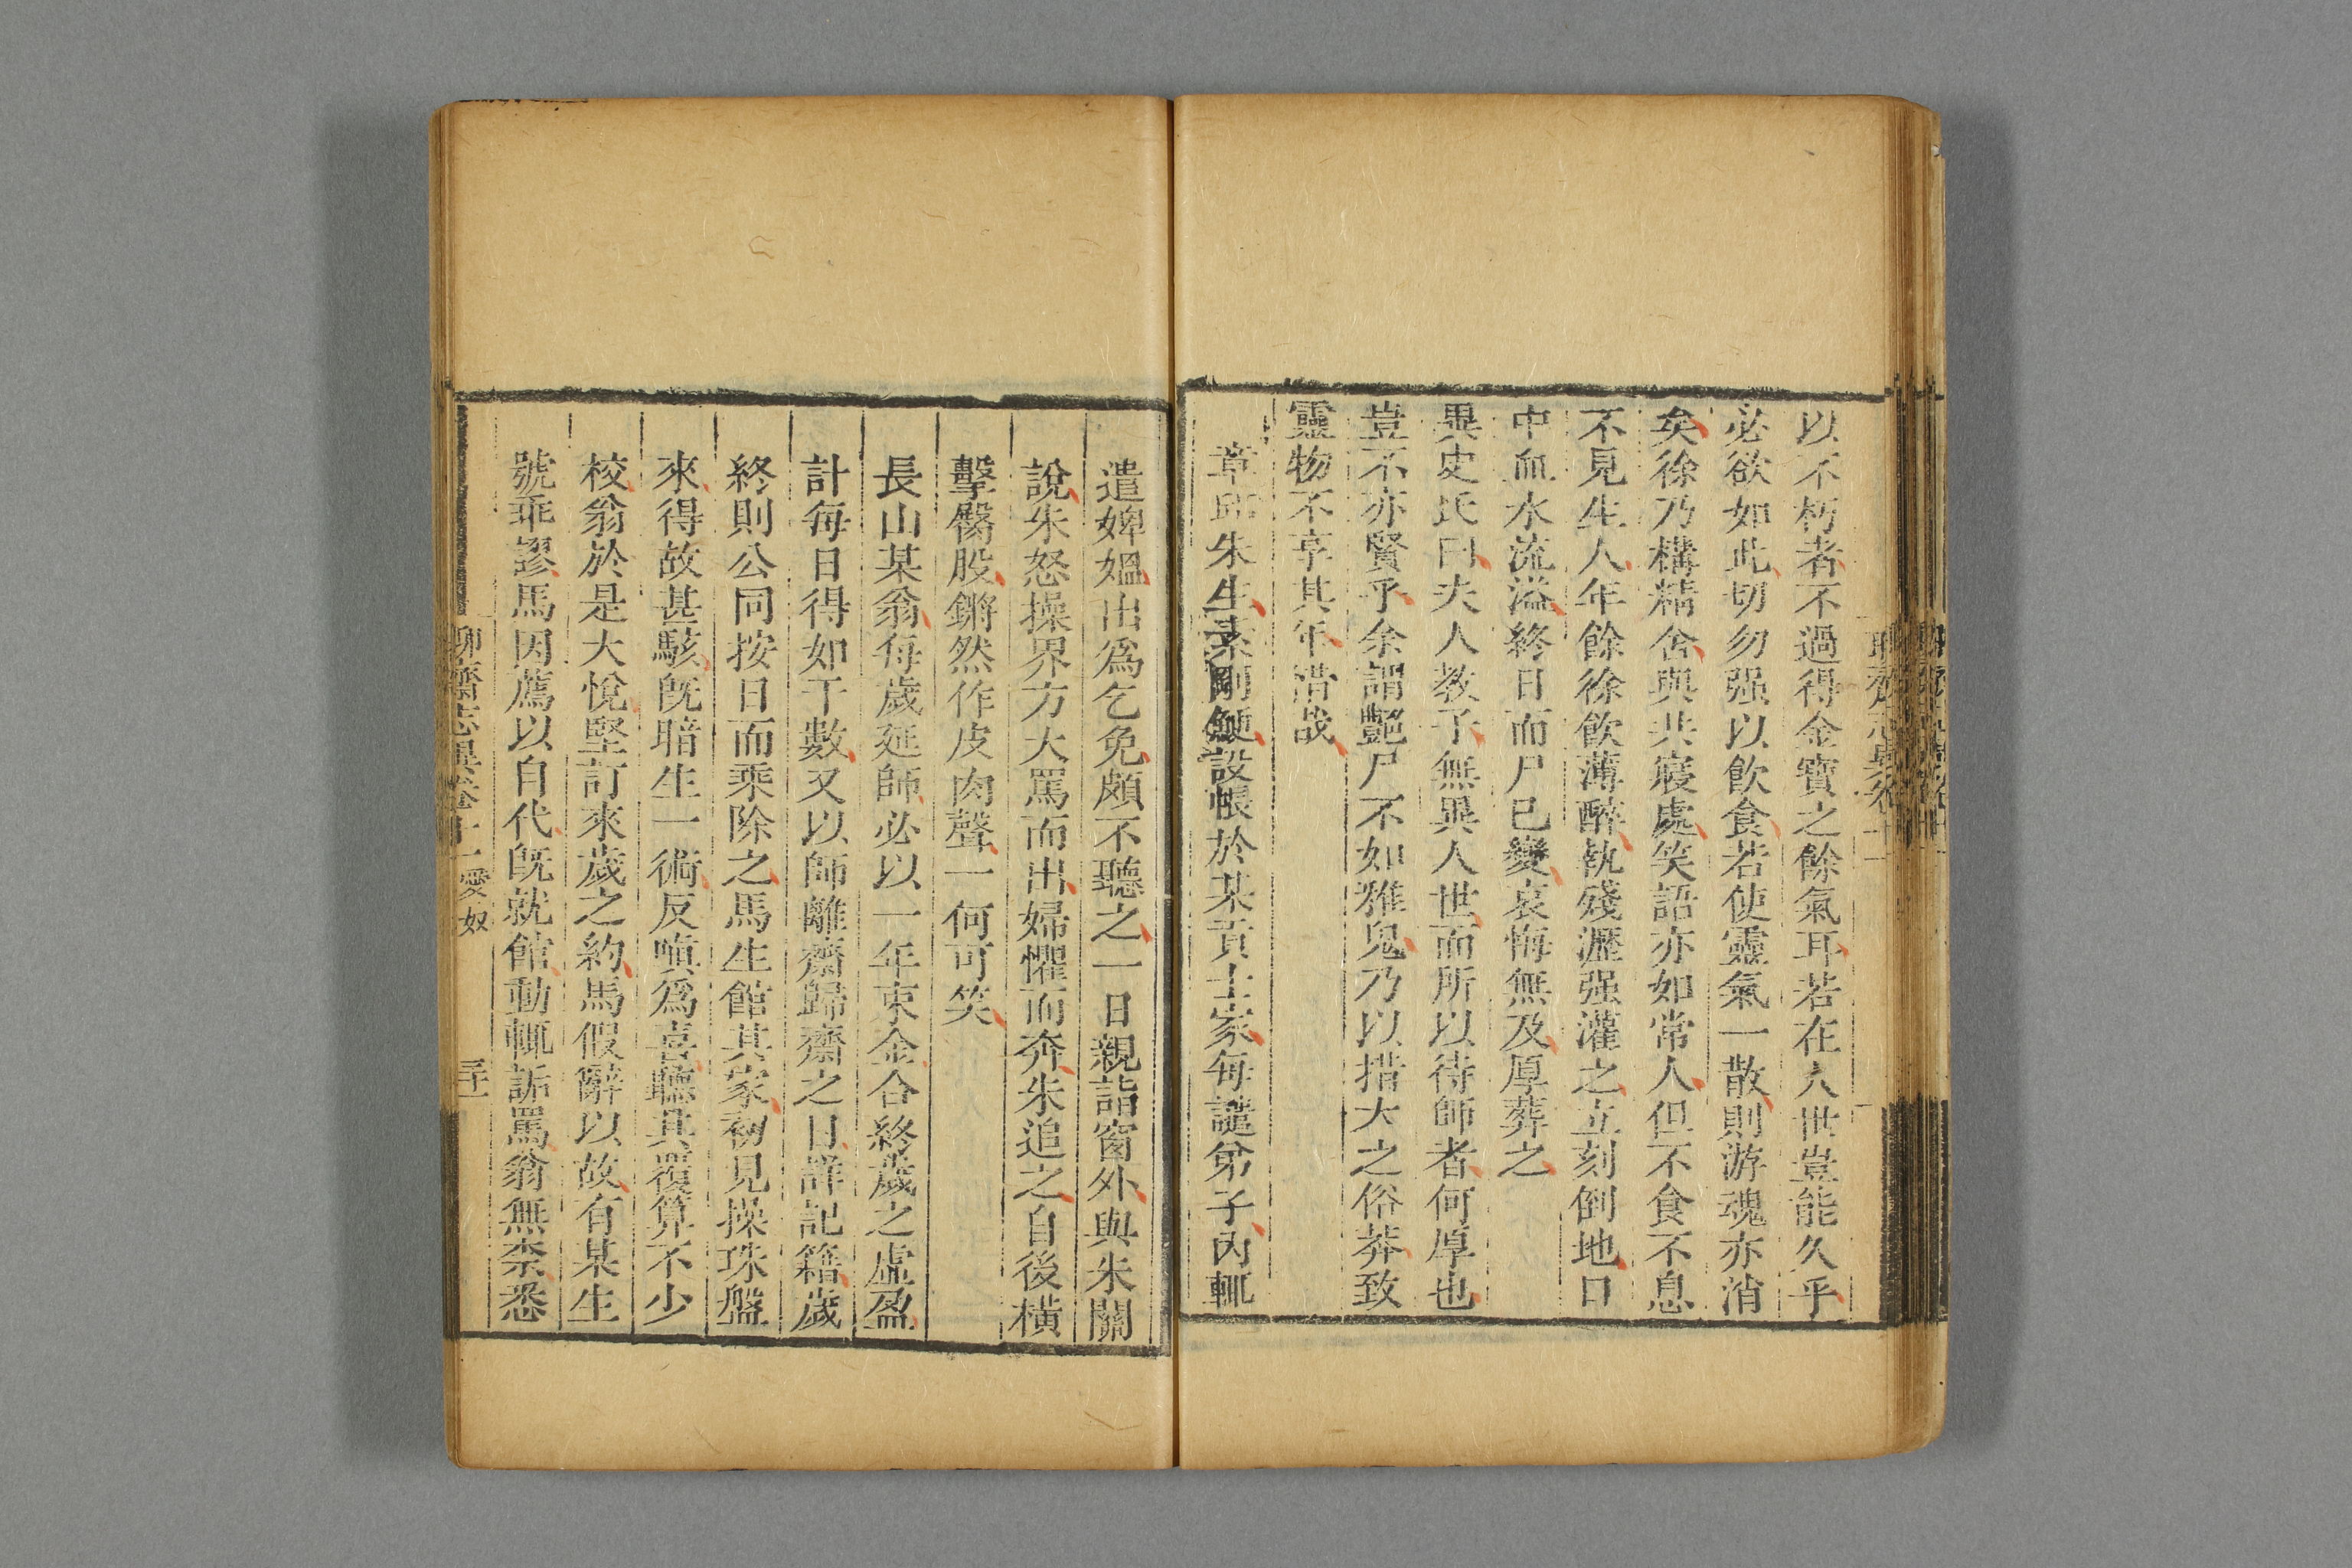 以不朽者不過得金寶之餘氣耳若在人世豈能久乎
必欲如此切勿强以飲食若使靈氣一散則游魂亦消
矣徐乃構精舍與共寢處笑語亦如常人但不食不息
不見生人年餘徐飲薄醉執殘瀝强灌之立刻倒地口
中血水流溢終日而尸已變哀悔無及厚葬之
異史氏曰夫人教子無異人世而所以待師者何厚也
豈不亦賢乎余謂艷尸不如雅鬼乃以措大之俗莽致
靈物不享其年惜哉
章邱朱生素剛鯁設帳於某貢士家每譴弟子內輒
遣婢媼出爲乞免頗不聽之一日親詣窗外與朱關
說朱怒操界方大罵而出婦懼而奔朱追之自後橫
擊臀股鏘然作皮肉聲一何可笑
長山某翁每歲延師必以一年束金合終歲之虛盈
計每日得如干數又以師離齋歸齋之日詳記籍歲
終則公同按日而乘除之馬生館其家初見操珠盤
來得故甚駭旣暗生一術反嗔爲喜聽其覆算不少
校翁於是大悅堅訂來歲之約馬假辭以故有某生
號乖謬馬因薦以自代旣就館動輒詬罵翁無柰悉
聊齋志異卷十一 愛奴